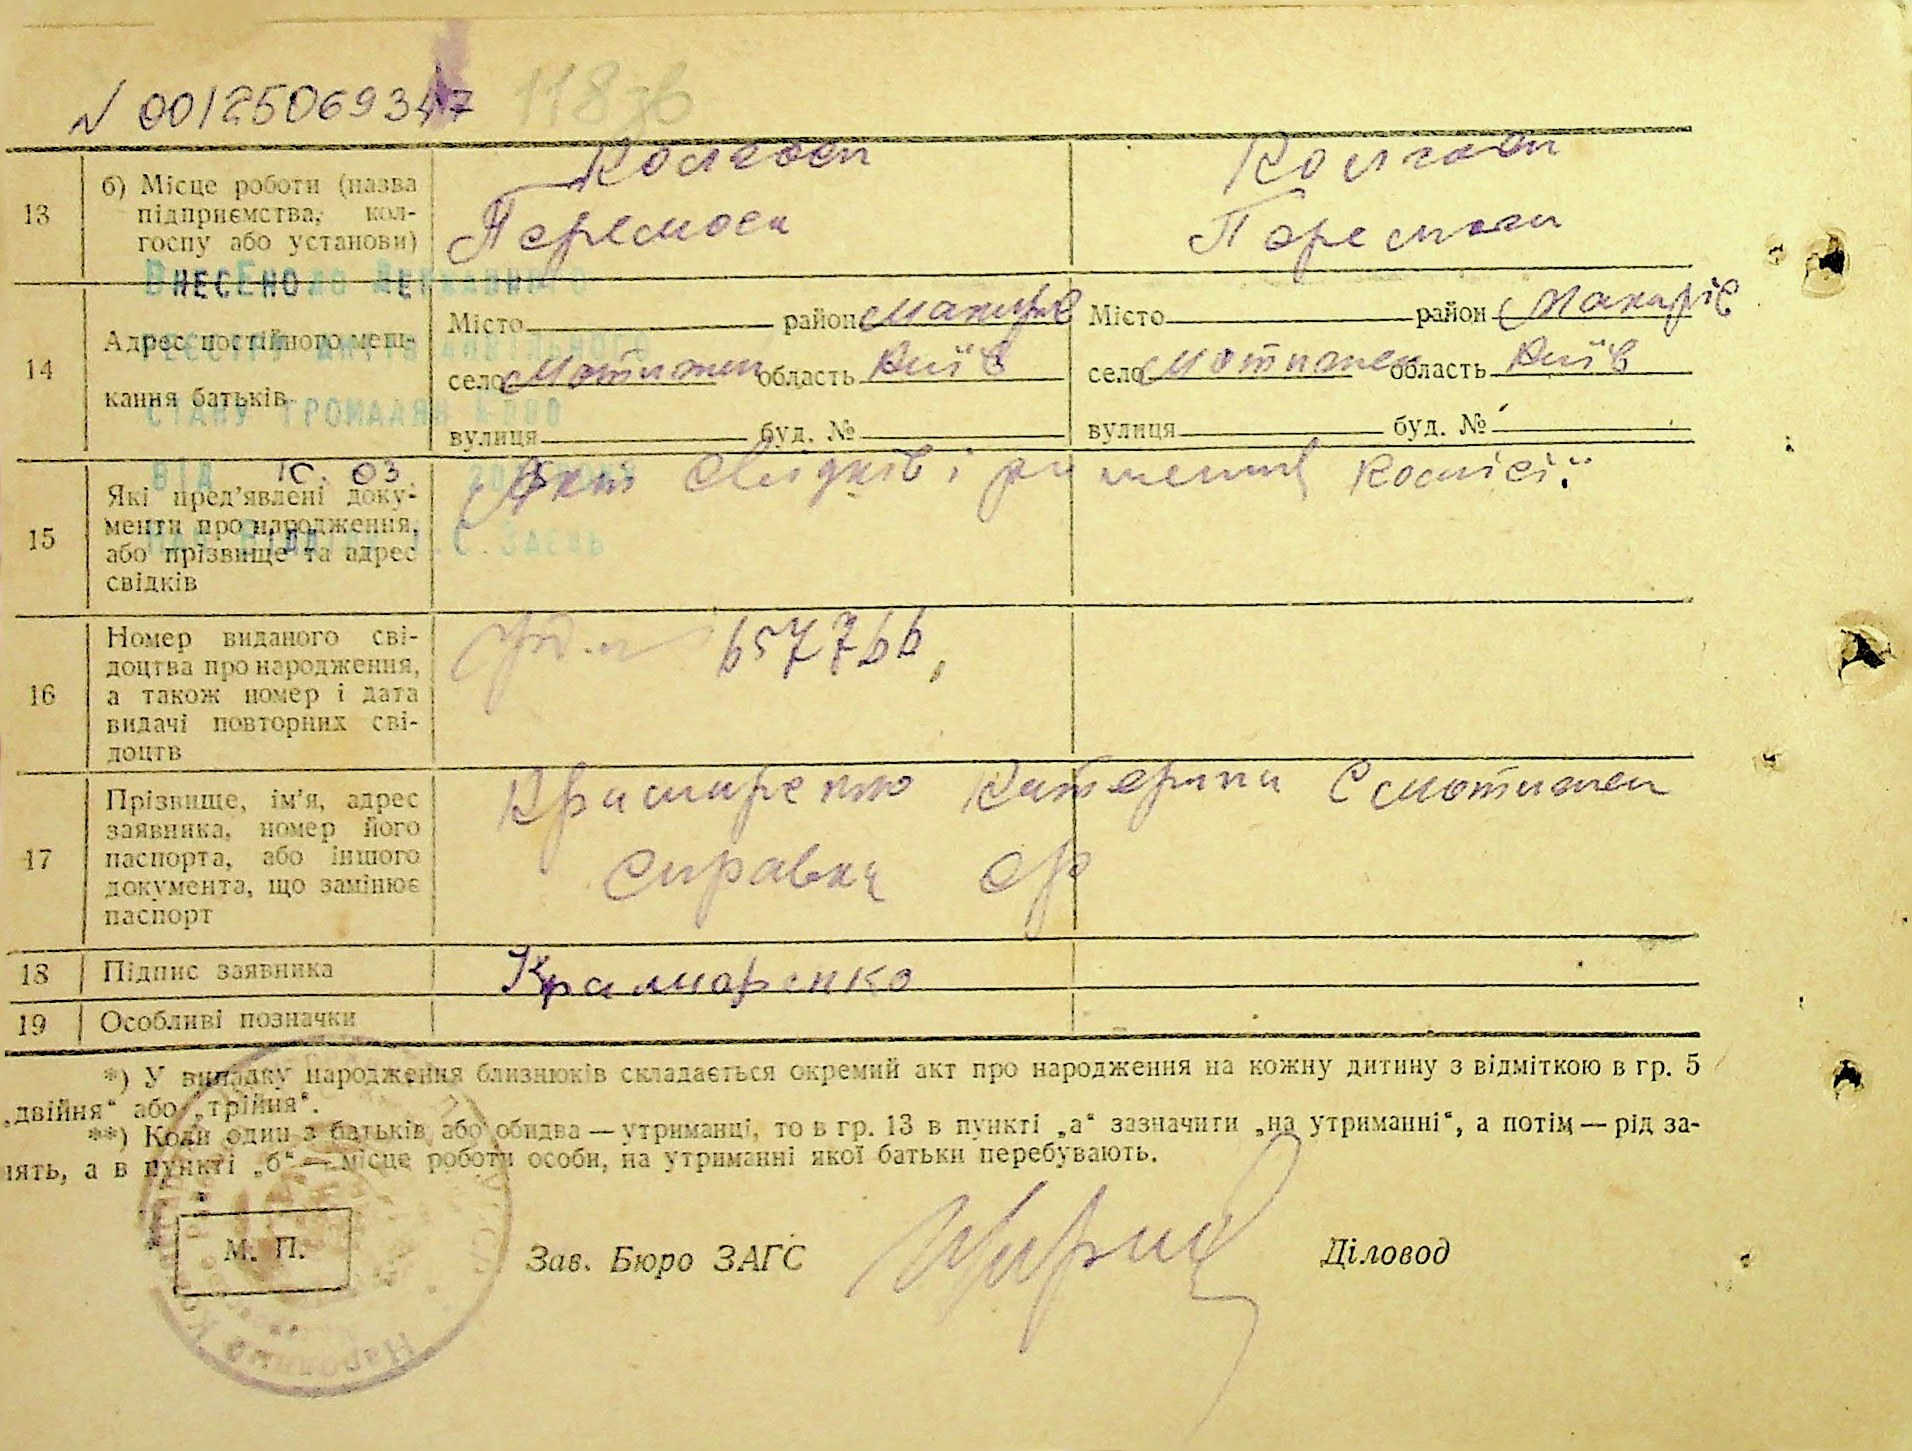 N 00125069347 118зв
13 б) Місце роботи (назва підприємства, колгоспу або установи) Колгосп Колгосп
Перемога Перемога
ВнесЕно до Державного
реєстру актів цивільного
стану громадян
від 10.03. 20
14 Адрес постійного мешкання батьків
Місто район Макарів Місто район Макарів
село Мотижен область Київ село Мотижен область Київ
вулиця буд. № вулиця буд. №
15 Які пред'явлені доку-
менти про народження,
або прізвище та адрес
свідків
Акт свідків і рішення комісії
16 Номер виданого сві-
доцтва про народження,
а також номер і дата
видачі повторних сві-
доцтв
657766,
17 Прізвище, ім'я, адрес
заявника, номер його
паспорта, або іншого
документа, що замінює
паспорт
Крамаренко Катерина С Мотижен
справка
18 Підпис заявника Крамаренко
19 Особливі позначки
*) У випадку народження близнюків складається окремий акт про народження на кожну дитину з відміткою в гр. 5
„двійня“ або „трійня“.
**) Коли один з батьків або обидва — утриманці, то в гр. 13 в пункті „а“ зазначити „на утриманні“, а потім — рід за-
нять, а в пункті „б“ — місце роботи особи, на утриманні якої батьки перебувають.
М. П. Зав. Бюро ЗАГС Діловод